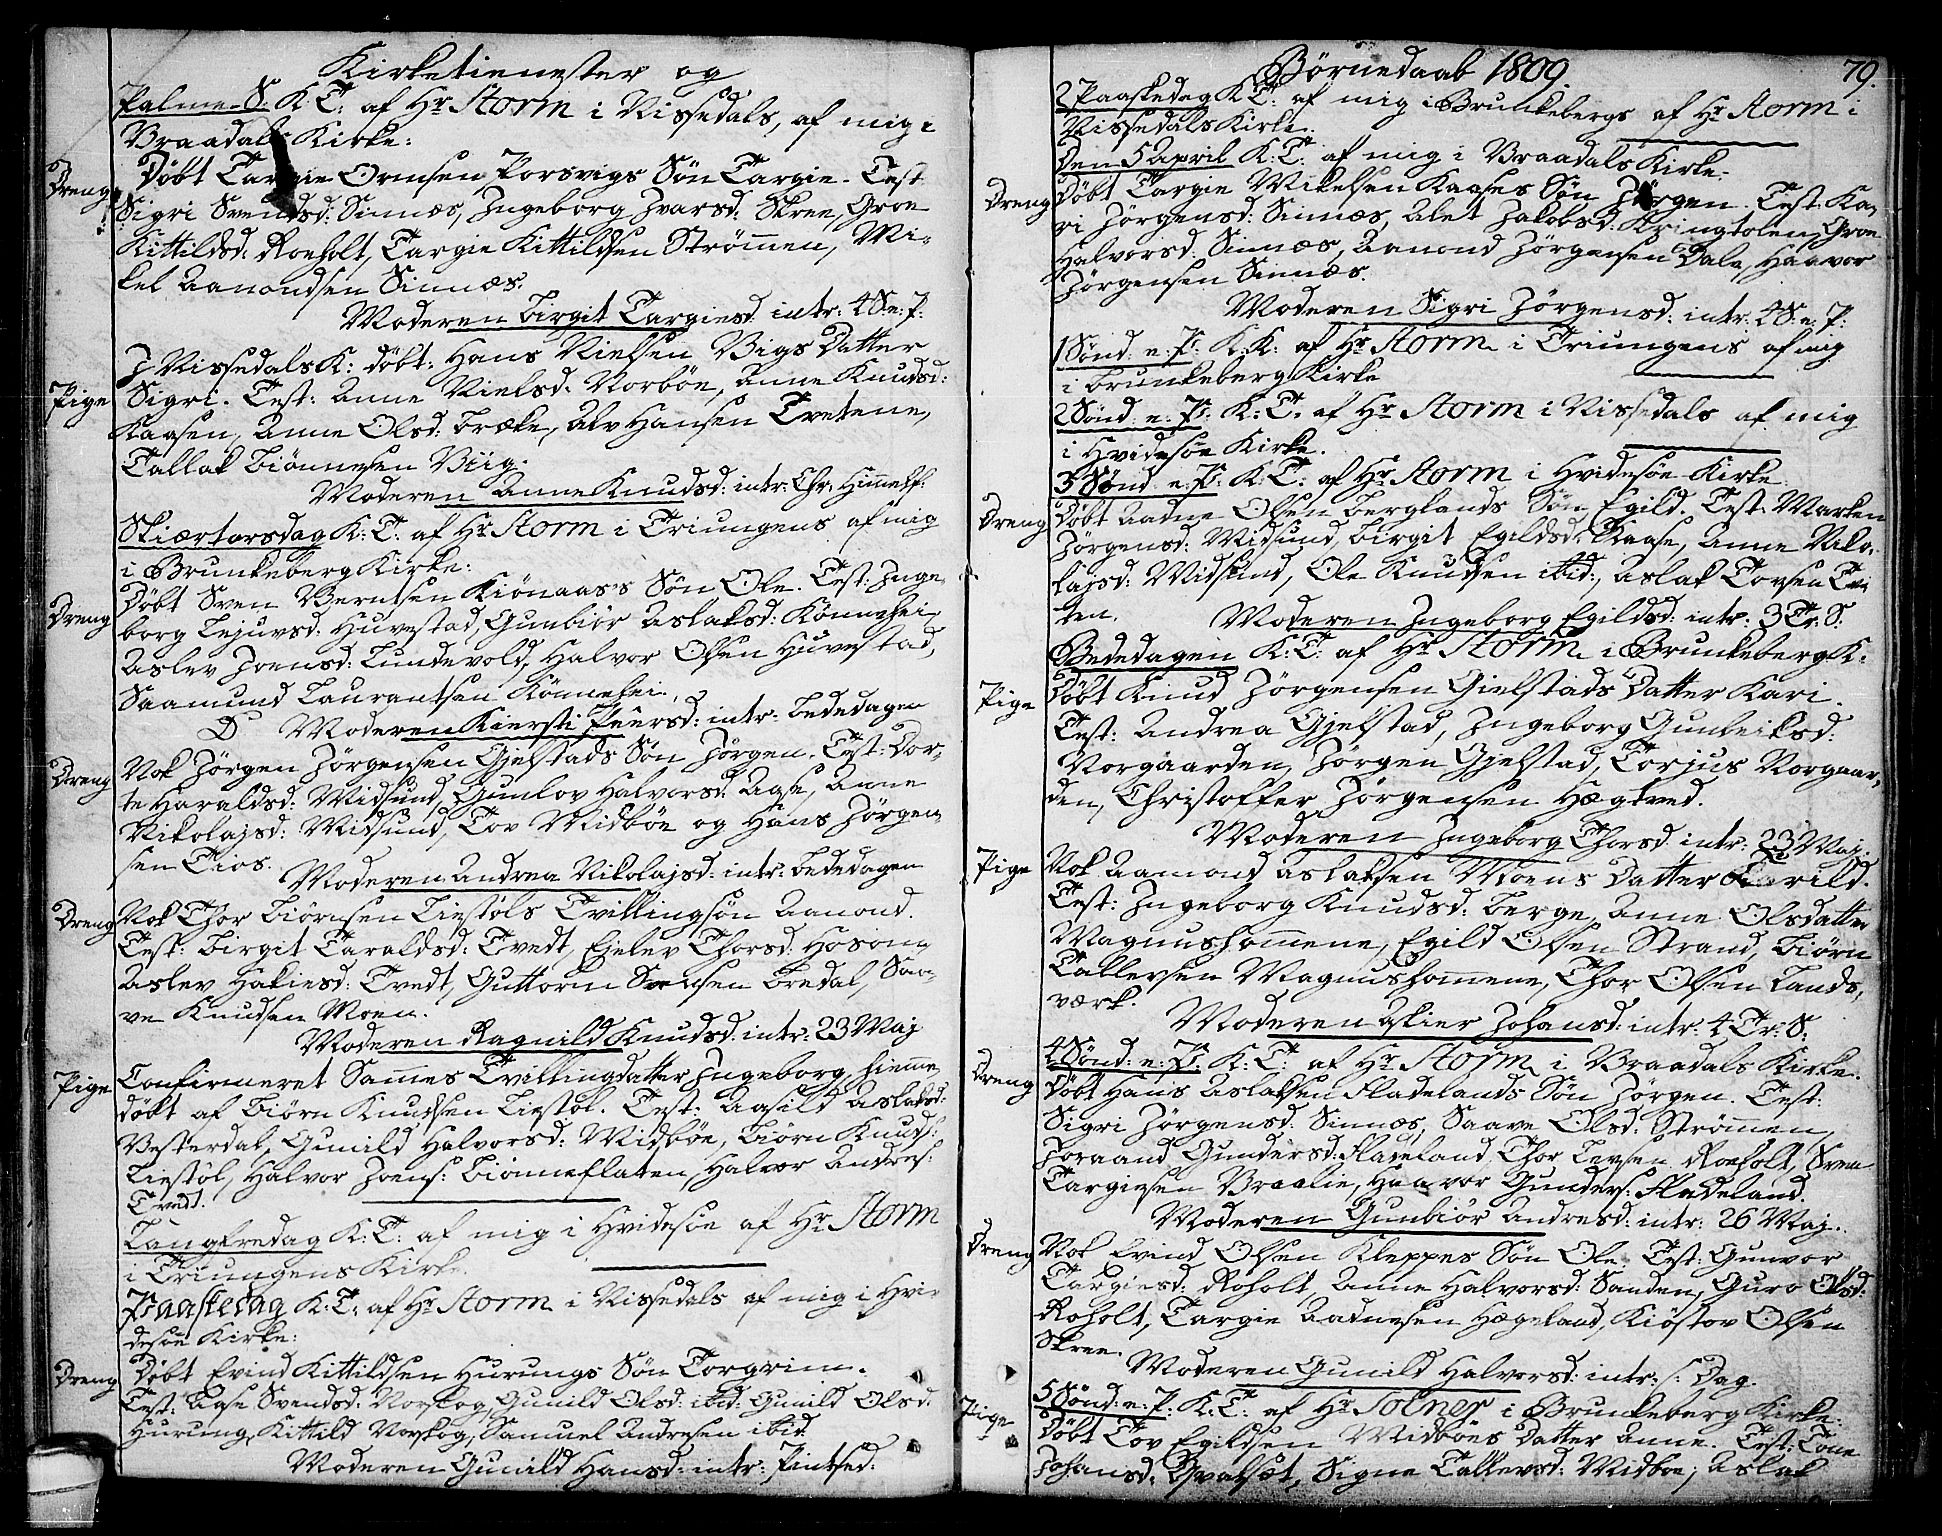 Kirketienester og
Palme-S. K.T. af Hr Storm i Nissedals, af mig i
Braadals Kirke:
Dreng Døbt Targie Ormsen Porsvigs Søn Targie. Test
Sigri Svendsd: Sinnæs, Ingeborg Ivarsd: Skree, Groe
Kittildsd: Roeholt, Targie Kittildsen Strømen, Mi-
kel Aanondsen Sinnæs.
Moderen Birgit Targiesd: intr: 4 S. e. P.
I Nissedals K: døbt: Hans Nielsen Vigs Datter
Pige Sigri. Test: Anne Nielsd. Norbøe, Anne Knudsd:
Kaasen, Anne Olsd: Bræke, Alv Hansen Tvetene,
Tallak Biønnesen Viig.
Moderen Anne Knudsd: intr: Chr. Himelf.
Skiærtorsdag K: T: af Hr Storm i Triungens af mig
i Brunkeberg Kirke:
Dreng Døbt Sven Berntsen Kiønaas's Søn Ole. Test: Inge-
borg Lejuvsd: Huvestad, Gunbiør Aslaksd: Kønnehei,
Aslev Joensd: Lundevold, Halvor Olsen Huvestad,
Saamund Laurantsen Kønnehei.
D Moderen Kiersti Peersd: intr: Bededagen
Dreng Nok Jørgen Jørgensen Gjelstads Søn Jørgen. Test: Dor-
te Haraldsd: Midsund, Gunlov Halvorsd: Aase, Anne
Nikolajsd: Midsund, Tov Midbøe og Hans Jørgen
sen Tios.
Moderen Andrea Nikolajsd: intr: Bededagen
Dreng Nok Thor Biørnsen Liestøls Tvillingsøn Aanond.
Test: Birgit Taraldsd: Tvedt, Ejelev Thorsd: Hosom,
Aslev Hakiesd: Tvedt, Guttorm Svensen Bredal, Saa-
ve Knudsen Moen.
Moderen Ragnild Knudsd: intr: 23 Maj
Pige Confirmeret Sames Tvillingdatter Ingeborg, hieme
døbt af Biørn Knudsen Liestøl. Test: Aasild Aslaksd:
Vesterdal, Gunild Halvorsd: Midbøe, Biørn Knuds:
Liestøl, Halvor Joens: Biønneflaten, Halvor Andres:
Tvedt.
Langfredag K: T: af mig i Hvidesøe af Hr Storm
i Triungens Kirke.
Paaskedag K: T: af Hr Storm i Nissedals af mig i Hvi-
desøe Kirke:
Dreng Døbt Evind Kittildsen Hurungs Søn Torgrim.
Test: Aase Svendsd: Norskog, Gunild Olsd: ibid: Gunild Olsd:
Hurung, Kittild Norskog, Samuel Andresen ibid.
Moderen Gunild Hansd: intr: Pintsed:
Børnedaab 1809. 79.
2 Paaskedag K T: af mig i Brunkebergs af Hr Storm i
Nissedals Kirke.
Den 5 April K: T: af mig i Braadals Kirke.
Dreng Døbt Targie Mikelsen Kaases Søn Jørgen. Test: Ka-
ri Jørgensd: Sinnæs, Alet Jakobsd: Kringtolen, Groe
Halvorsd: Sinnæs, Aanond Jørgensen Dale, Haavor
Jørgensen Sinnæs.
Moderen Sigri Jørgensd: intr: 4 S: e: P:
1 Sønd: e: P: K: K: af Hr Storm i Triungens af mig
i Brunkeberg Kirke
2 Sønd: e: P: K: T: af Hr Storm i Nissedals af mig
i Hvidesøe Kirke.
3 Sønd e: P: K: T: af Hr Storm i Hvidesøe Kirke
Dreng Døbt Aadne Olsen Berglands Søn Egild. Test: Marken
Jørgensd: Midsund, Birgit Egildsd: Kaase, Anne Niko-
lajsd: Midsund, Ole Knudsen ibid:, Aslak Tovsen
ten. Moderen Ingeborg Egildsd: intr: 3 Tr: S:
Bededagen K: T: af Hr Storm i Brunkeberg K:
Pige Døbt Knud Jørgensen Gielstads Datter Kari.
Test: Andrea Gjelstad, Ingeborg Gunleiksd:
Norgaarden, Jørgen Gjelstad, Torjus Norgaar-
den, Christoffer Jørgensen Hægtved.
Moderen Ingeborg Thorsd: intr: 23 Maj.
Pige Nok Aamond Aslaksen Moens Datter
Test: Ingeborg Knudsd: Berge, Anne Olsdatter
Magnushommene, Egild Olsen Strand, Biørn
Tallevsen Magnushommene, Thor Olsen Lands-
værk.
Moderen Asier Johansd: intr: 4 Tr: S:
4 Sønd: e: P: K: T: af Hr Storm i Braadals Kirke.
Dreng Døbt Hans Aslaksen Fladelands Søn Jørgen. Test:
Sigri Jørgensd: Sinnæs, Saave Olsd: Strømen,
Joraand Gundersd: Fladeland, Thor Levsen Roeholt, Sven
Targiesen Vraalie, Haavor Gunders: Fladeland.
Moderen Gunbiør Andresd: intr: 26 Maj.
Dreng Nok Evind Olsen Kleppes Søn Ole. Test: Gunvor
Targiesd: Roholt, Anne Halvorsd: Sanden, Guro Olsd:
Roholt, Targie Aadnesen Hægeland, Kiøstov Olsen
Skree.
Moderen Gunild Halvorsd: intr: s: Dag.
5 Sønd: e: P: K: T: af Hr Solner i Brunkeberg Kirke:
Pige Døbt Tov Egildsen Midbøes Datter Anne. Test: Tone
Johansd: Qvalsøt, Signe Tallevsd: Midbøe, Aslak